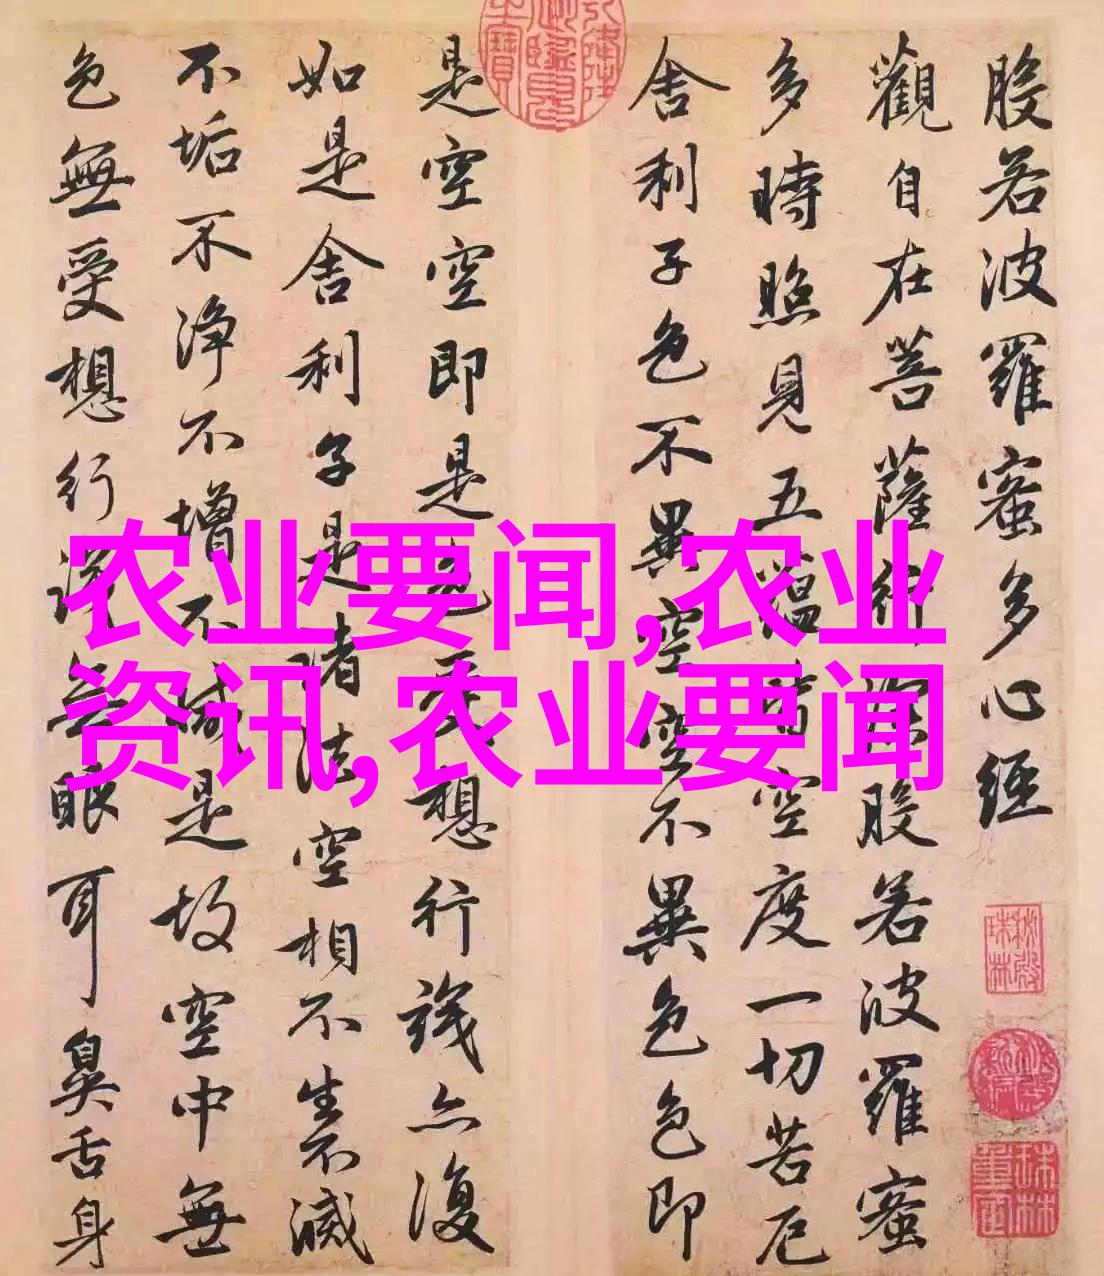 般若波羅蜜多心經
觀自在菩薩行深般若波羅蜜
多時照見五蘊皆空度一切苦厄
舍利子色不異空空不異色色即
是空空即是色受想行識亦復
如是舍利子是諸法空相不生不滅
不垢不淨不增不減是故空中無
色無受想行識無眼耳鼻舌身
农业要闻,农业
资讯,农业要闻
秘殿珠林
珠林重定